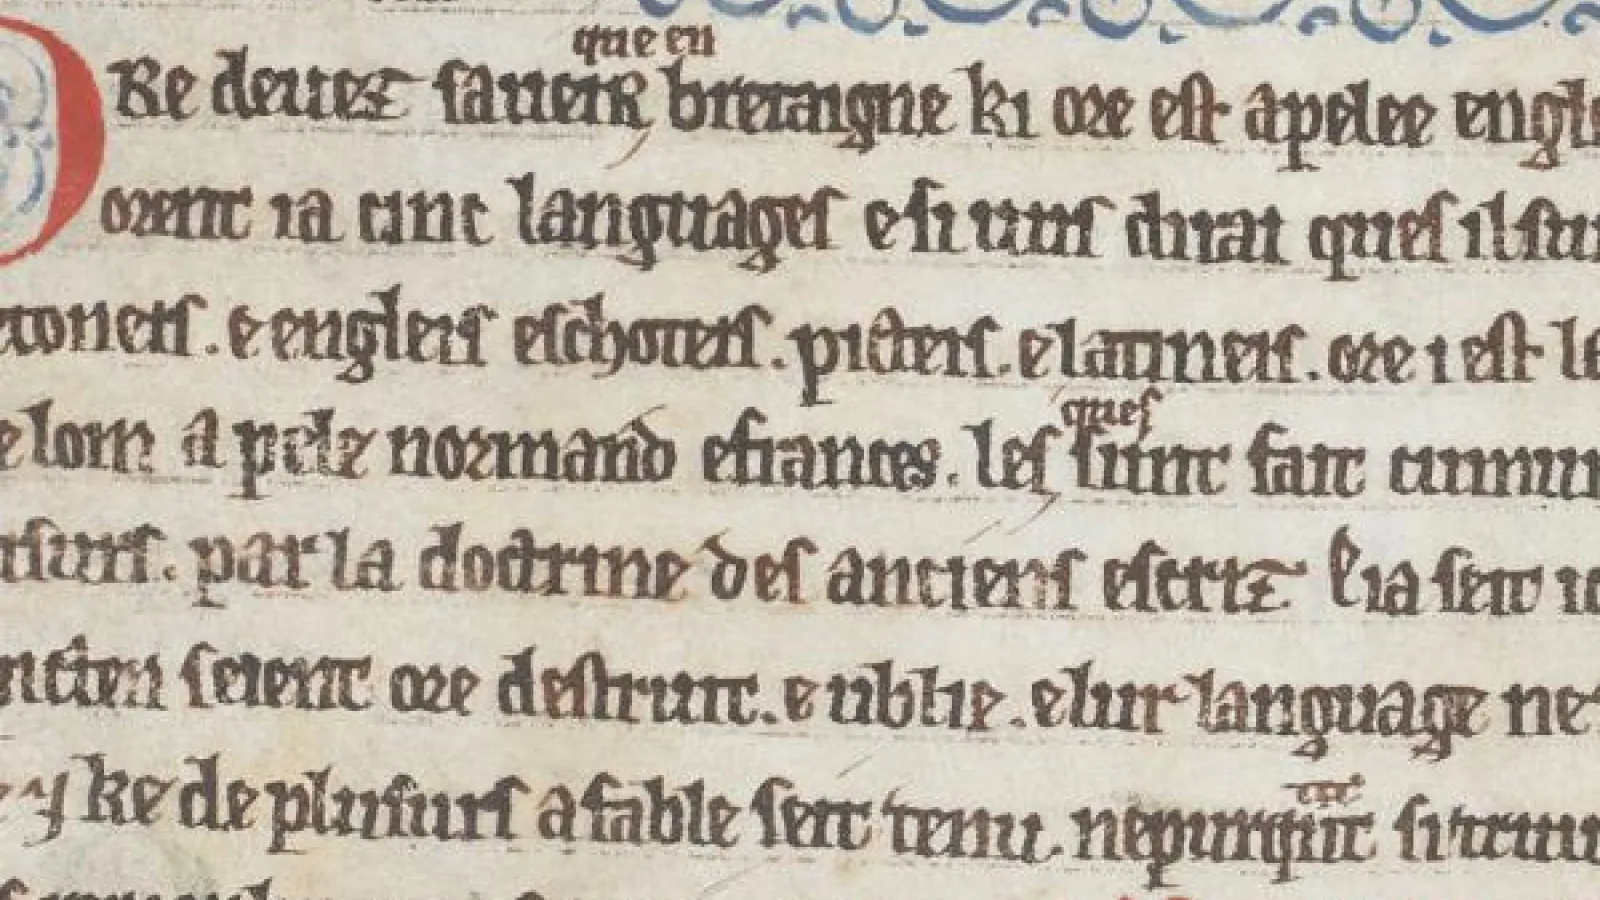 que en
ORe deuez saueir bretaigne ki ore est apelee engle
orent ia cinc languages e si uns dirat ques il sun
etoneis . e engleis eschoteis . picteis . e latineis . ore i est le
e lom apele normand e frances . les ques sunt fait cumun
usurs . par la doctrine des anciens escriz kia seit io
ncien seient ore destruit . e ublie . e lur language ne
ke de plusurs a fable seit tenu . nepurquant si